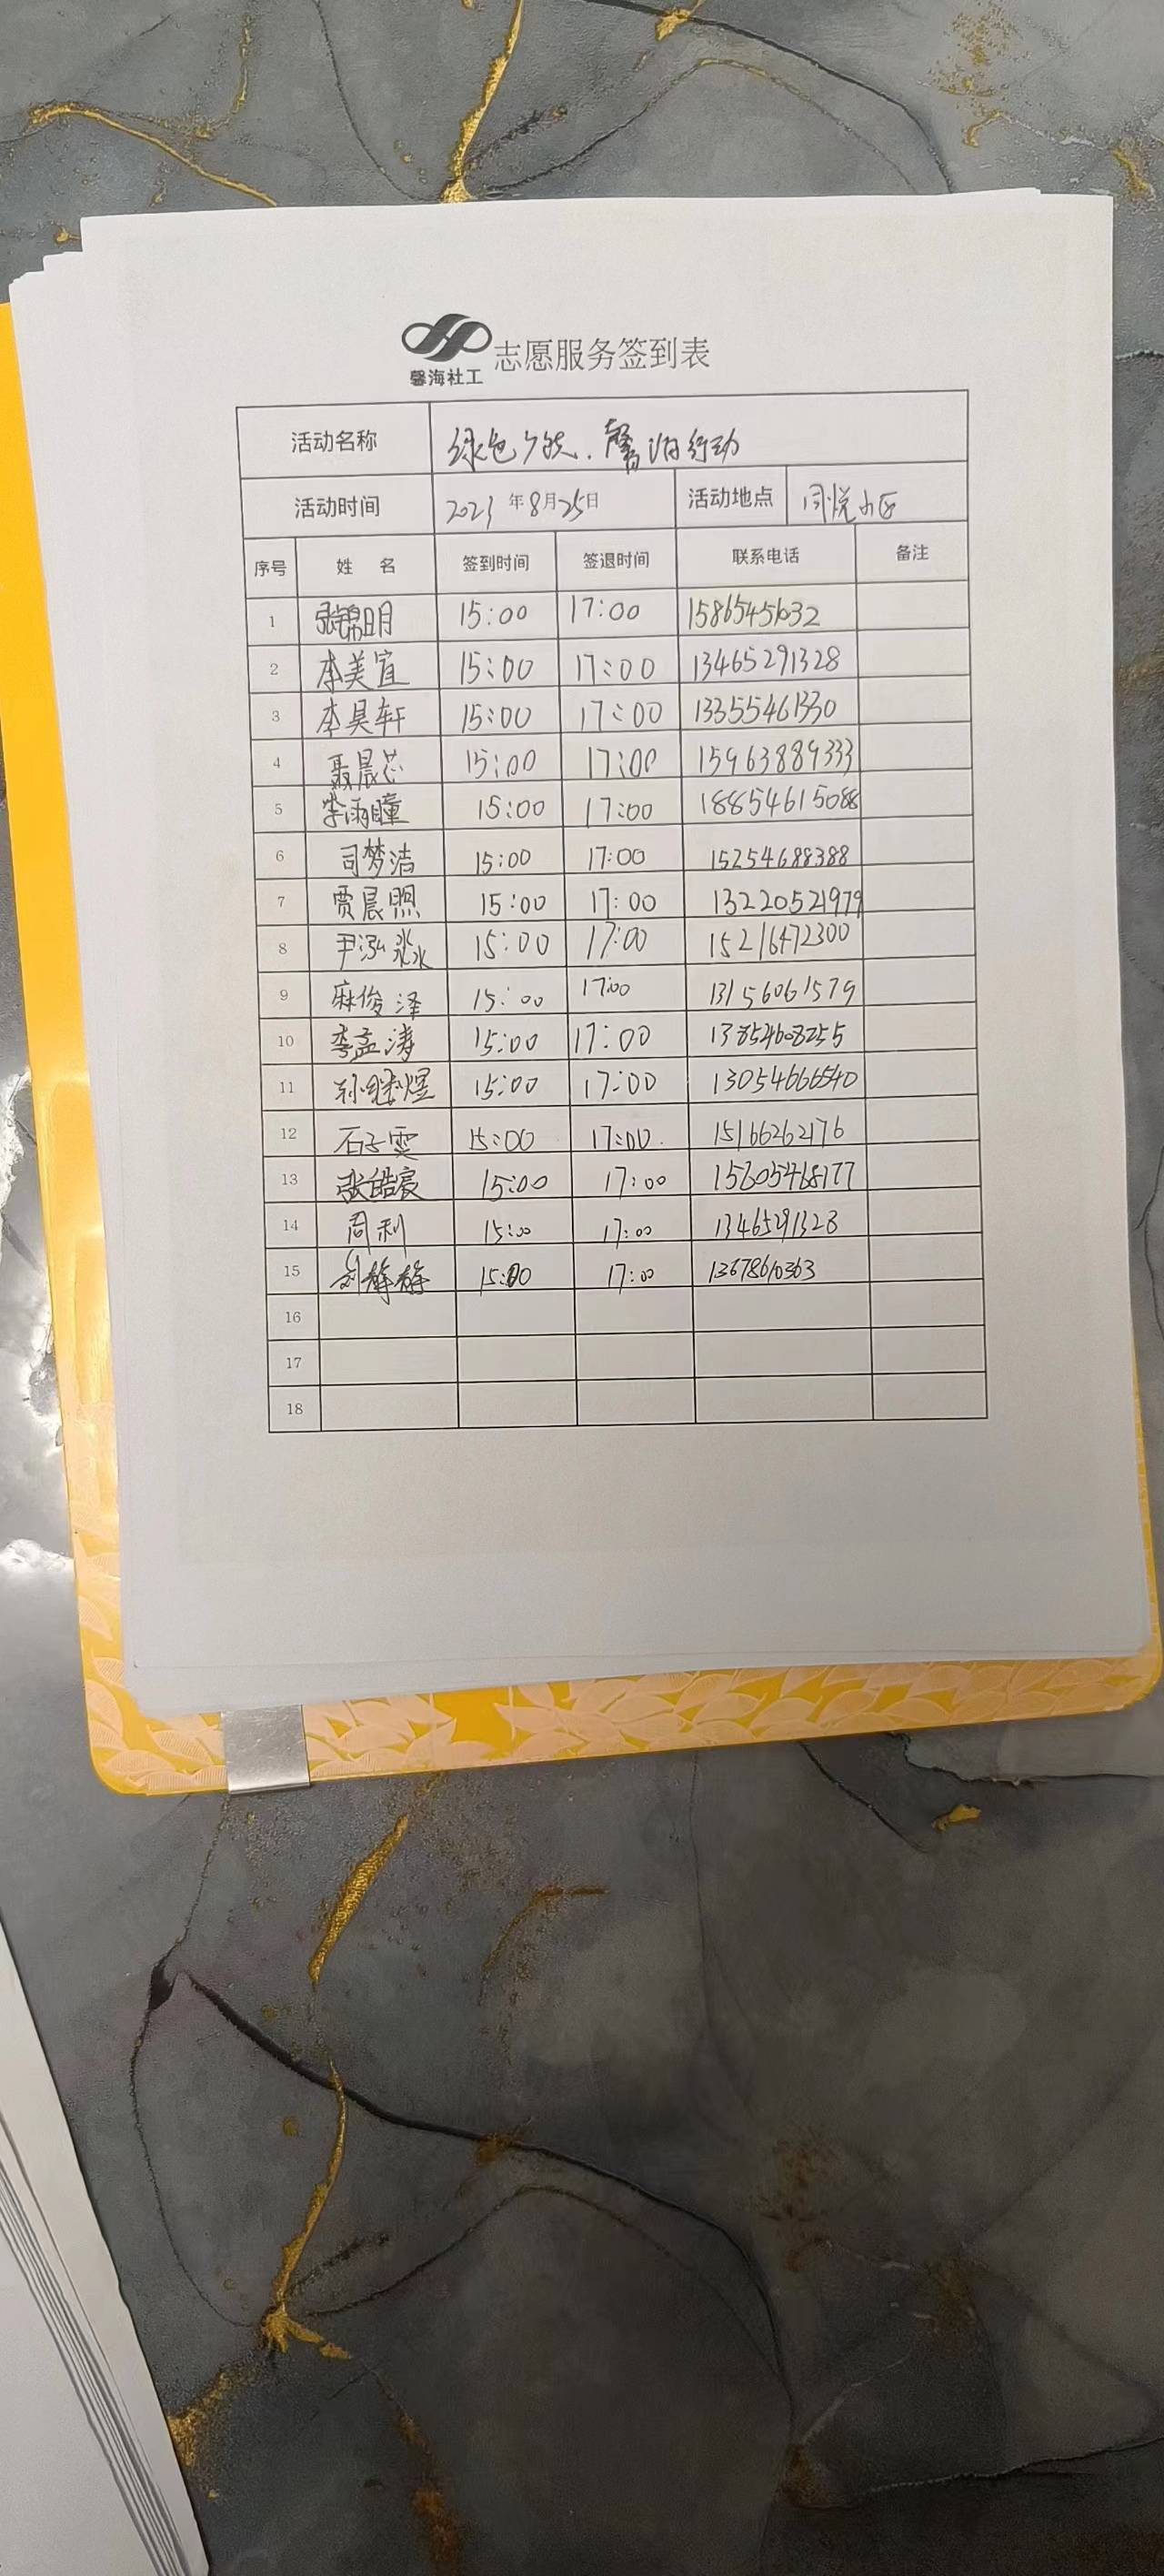 馨海社工 志愿服务签到表
活动名称 绿色 馨海行动
活动时间 2023年8月25日 活动地点 同悦小区
序号 姓 名 签到时间 签退时间 联系电话 备注
1 张锦明 15:00 17:00 15865451632
2 本美宜 15:00 17:00 13465291328
3 本昊轩 15:00 17:00 13355461330
4 聂晨芯 15:00 17:00 15963889333
5 李雨瞳 15:00 17:00 18854615088
6 司梦洁 15:00 17:00 15254688388
7 贾晨照 15:00 17:00 13220521979
8 尹泓淼 15:00 17:00 15216472300
9 麻俊泽 15:00 17:00 13156061579
10 李孟涛 15:00 17:00 13854608255
11 孙继煜 15:00 17:00 13054666540
12 石子雯 15:00 17:00 15166262176
13 张皓宸 15:00 17:00 15605468177
14 周利 15:00 17:00 13465291328
15 刘静静 15:00 17:00 13678610363
16
17
18